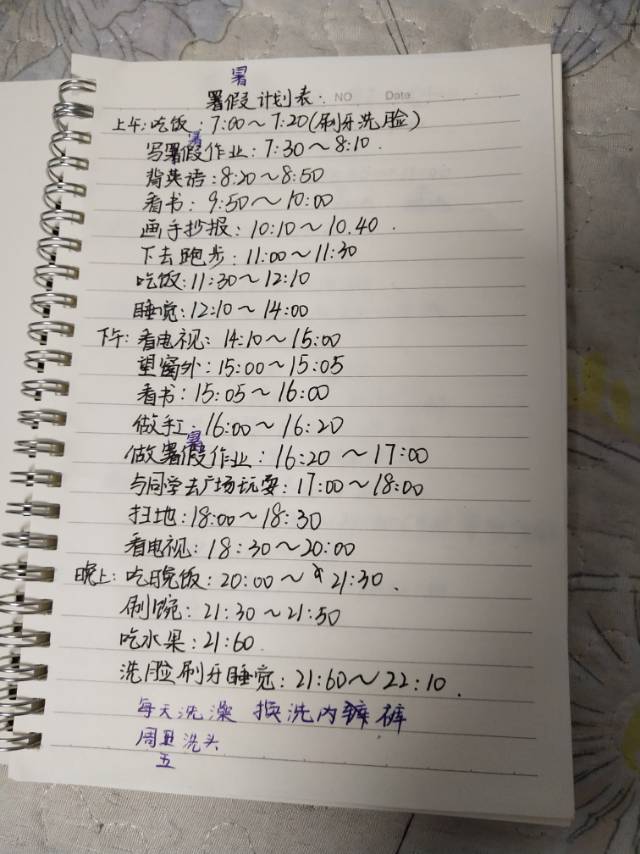 暑
暑假计划表. NO Date
上午:吃饭:7:00~7:20(刷牙洗脸)
写暑假作业:7:30~8:10.
背英语:8:20~8:50
看书:9:50~10:00
画手抄报:10:10~10.40.
下去跑步:11:00~11:30
吃饭:11:30~12:10
睡觉:12:10~14:00
下午:看电视:14:10~15:00
望窗外:15:00~15:05
看书:15:05~16:00
做手工:16:00~16:20
暑
做暑假作业:16:20~17:00
与同学去广场玩耍:17:00~18:00
扫地:18:00~18:30
看电视:18:30~20:00
晚上:吃晚饭:20:00~21:30.
刷碗:21:30~21:50
吃水果:21:60.
洗脸刷牙睡觉:21:60~22:10.
每天洗澡 换洗内裤
周五洗头
五